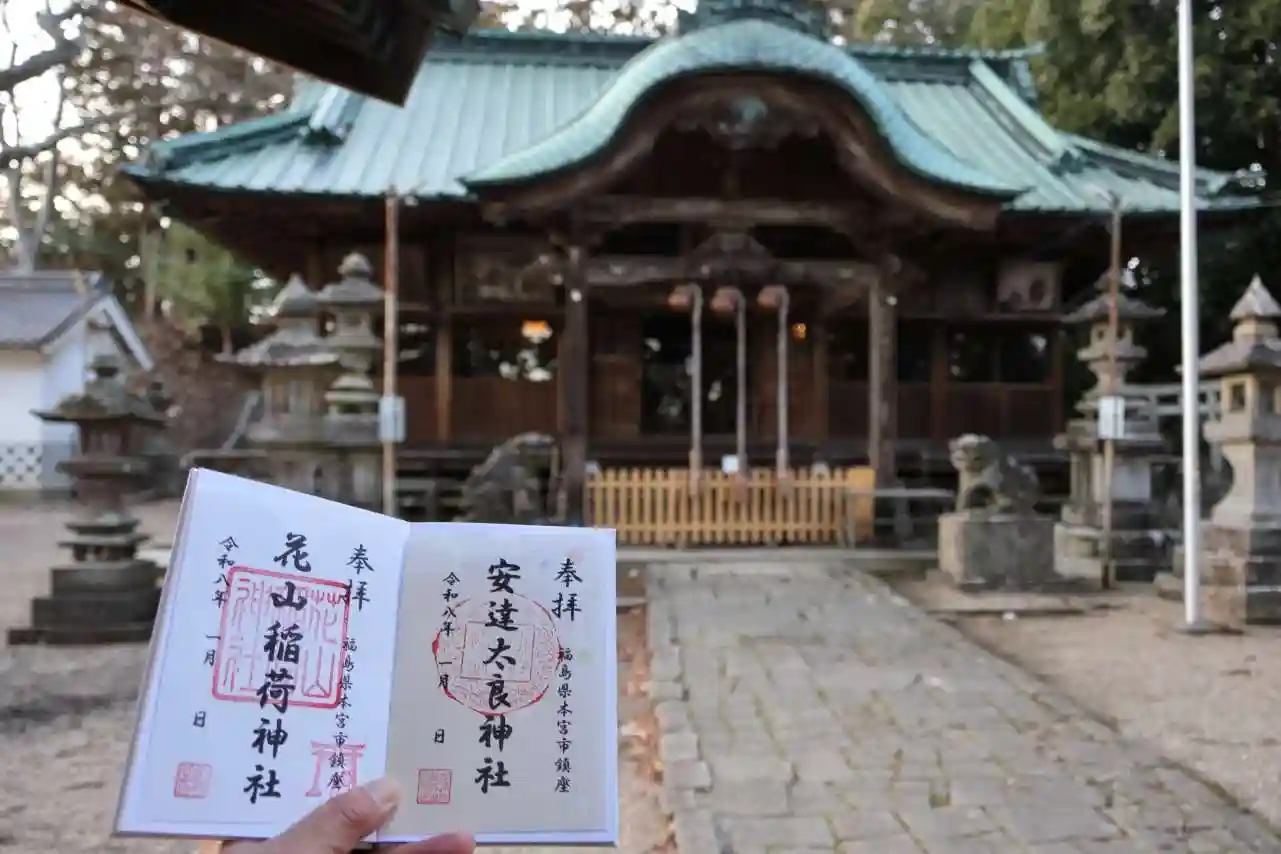 奉拝
福島県本宮市鎮座
安達太良神社
令和八年 一月 日
奉拝
福島県本宮市鎮座
花山稲荷神社
令和八年 一月 日
花山
神社